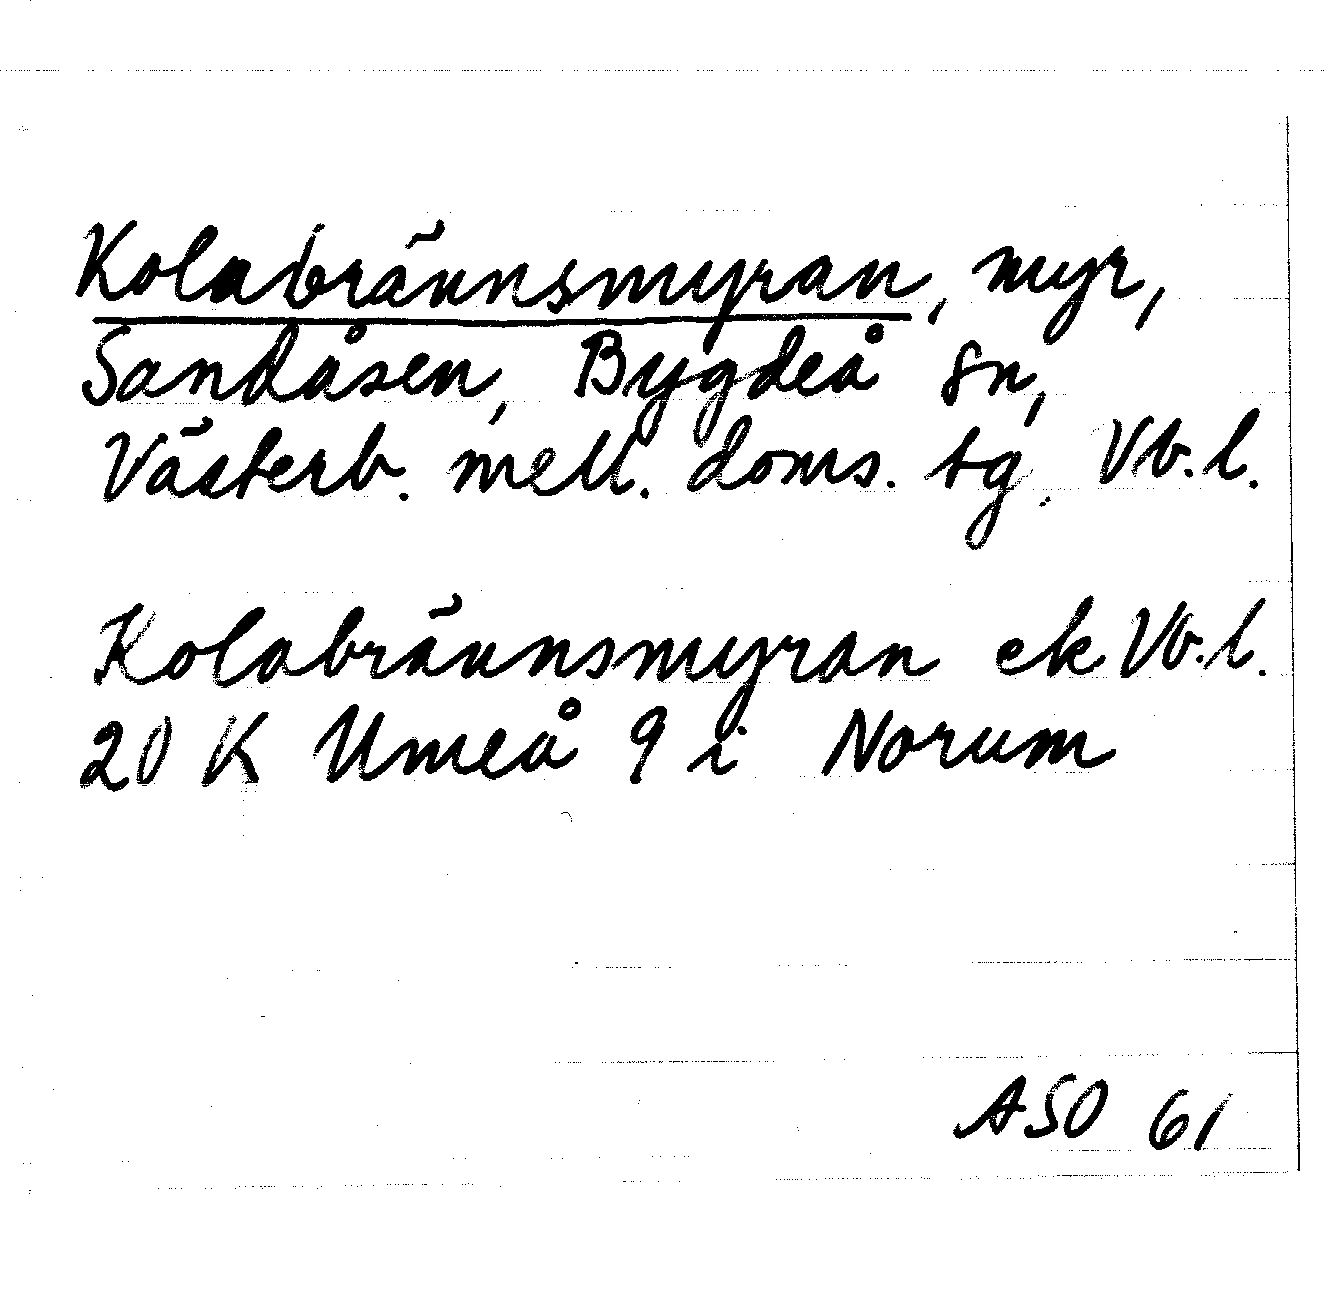 Kolabrännsmyran, myr,
Sandåsen, Bygdeå sn,
Västerb. mell. doms. tg. Vb.l.
Kolabrännsmyran ek Vb.l.
20 K Umeå 9 i Norum
ASO 61